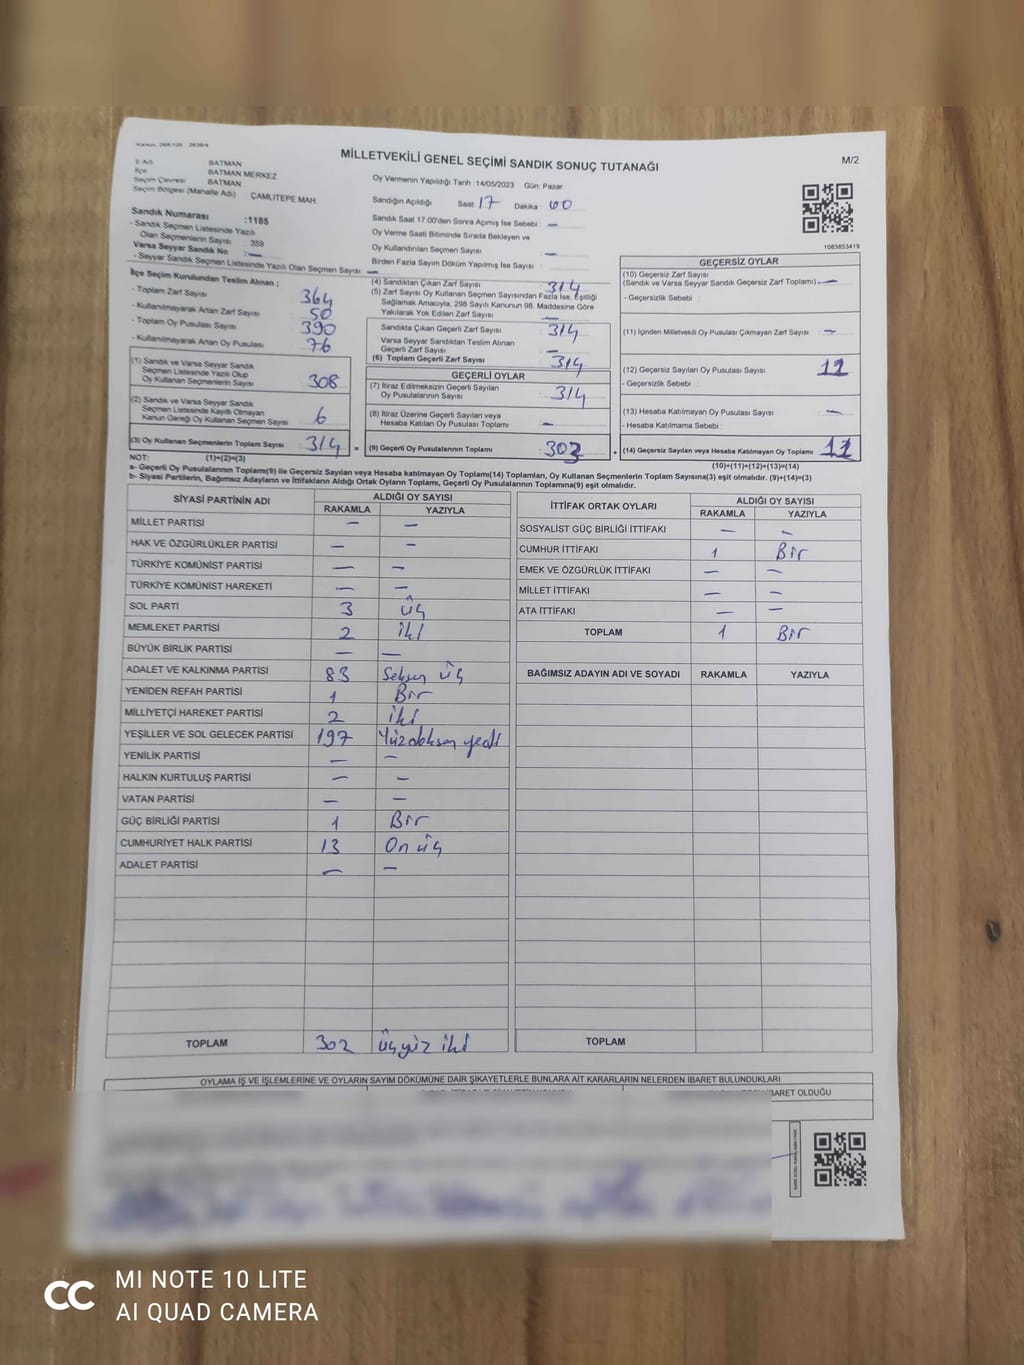 MİLLETVEKİLİ GENEL SEÇİMİ SANDIK SONUÇ TUTANAĞI
M/2
İl Adı BATMAN
İlçe BATMAN MERKEZ
Seçim Çevresi BATMAN
Seçim Bölgesi (Mahalle Adı) ÇAMLITEPE MAH.
Sandık Numarası :1185
- Sandık Seçmen Listesinde Yazılı
Olan Seçmenlerin Sayısı : 359
Varsa Seyyar Sandık No : —
- Seyyar Sandık Seçmen Listesinde Yazılı Olan Seçmen Sayısı : —
Oy Vermenin Yapıldığı Tarih : 14/05/2023 Gün: Pazar
Sandığın Açıldığı Saat : 17 Dakika : 00
Sandık Saat 17.00'den Sonra Açılmış İse Sebebi : —
Oy Verme Saati Bitiminde Sırada Bekleyen ve
Oy Kullandırılan Seçmen Sayısı : —
Birden Fazla Sayım Döküm Yapılmış İse Sayısı : —
1083853419
İlçe Seçim Kurulundan Teslim Alınan ;
- Toplam Zarf Sayısı : 364
- Kullanılmayarak Artan Zarf Sayısı : 50
- Toplam Oy Pusulası Sayısı : 390
- Kullanılmayarak Artan Oy Pusulası : 76
(1) Sandık ve Varsa Seyyar Sandık
Seçmen Listesinde Yazılı Olup
Oy Kullanan Seçmenlerin Sayısı : 308
(2) Sandık ve Varsa Seyyar Sandık
Seçmen Listesinde Kayıtlı Olmayan
Kanun Gereği Oy Kullanan Seçmen Sayısı : 6
(3) Oy Kullanan Seçmenlerin Toplam Sayısı : 314
(4) Sandıktan Çıkan Zarf Sayısı : 314
(5) Zarf Sayısı Oy Kullanan Seçmen Sayısından Fazla İse, Eşitliği
Sağlamak Amacıyla; 298 Sayılı Kanunun 98. Maddesine Göre
Yakılarak Yok Edilen Zarf Sayısı : —
Sandıkta Çıkan Geçerli Zarf Sayısı : 314
Varsa Seyyar Sandıktan Teslim Alınan
Geçerli Zarf Sayısı : —
(6) Toplam Geçerli Zarf Sayısı : 314
GEÇERLİ OYLAR
(7) İtiraz Edilmeksizin Geçerli Sayılan
Oy Pusulalarının Sayısı : 314
(8) İtiraz Üzerine Geçerli Sayılan veya
Hesaba Katılan Oy Pusulası Toplamı : —
= (9) Geçerli Oy Pusulalarının Toplamı : 303
GEÇERSİZ OYLAR
(10) Geçersiz Zarf Sayısı
(Sandık ve Varsa Seyyar Sandık Geçersiz Zarf Toplamı) : —
- Geçersizlik Sebebi :
(11) İçinden Milletvekili Oy Pusulası Çıkmayan Zarf Sayısı : —
(12) Geçersiz Sayılan Oy Pusulası Sayısı : 11
- Geçersizlik Sebebi :
(13) Hesaba Katılmayan Oy Pusulası Sayısı : —
- Hesaba Katılmama Sebebi :
+ (14) Geçersiz Sayılan veya Hesaba Katılmayan Oy Toplamı : 11
NOT: (1)+(2)=(3) (10)+(11)+(12)+(13)=(14)
a- Geçerli Oy Pusulalarının Toplamı(9) ile Geçersiz Sayılan veya Hesaba katılmayan Oy Toplamı(14) Toplamları, Oy Kullanan Seçmenlerin Toplam Sayısına(3) eşit olmalıdır. (9)+(14)=(3)
b- Siyasi Partilerin, Bağımsız Adayların ve İttifakların Aldığı Ortak Oyların Toplamı, Geçerli Oy Pusulalarının Toplamına(9) eşit olmalıdır.
SİYASİ PARTİNİN ADI ALDIĞI OY SAYISI
RAKAMLA YAZIYLA
MİLLET PARTİSİ — —
HAK VE ÖZGÜRLÜKLER PARTİSİ — —
TÜRKİYE KOMÜNİST PARTİSİ — —
TÜRKİYE KOMÜNİST HAREKETİ — —
SOL PARTİ 3 üç
MEMLEKET PARTİSİ 2 iki
BÜYÜK BİRLİK PARTİSİ — —
ADALET VE KALKINMA PARTİSİ 83 Seksen üç
YENİDEN REFAH PARTİSİ 1 Bir
MİLLİYETÇİ HAREKET PARTİSİ 2 iki
YEŞİLLER VE SOL GELECEK PARTİSİ 197 Yüzdoksan yedi
YENİLİK PARTİSİ — —
HALKIN KURTULUŞ PARTİSİ — —
VATAN PARTİSİ — —
GÜÇ BİRLİĞİ PARTİSİ 1 Bir
CUMHURİYET HALK PARTİSİ 13 On üç
ADALET PARTİSİ — —
TOPLAM 302 üçyüz iki
İTTİFAK ORTAK OYLARI ALDIĞI OY SAYISI
RAKAMLA YAZIYLA
SOSYALİST GÜÇ BİRLİĞİ İTTİFAKI — —
CUMHUR İTTİFAKI 1 Bir
EMEK VE ÖZGÜRLÜK İTTİFAKI — —
MİLLET İTTİFAKI — —
ATA İTTİFAKI — —
TOPLAM 1 Bir
BAĞIMSIZ ADAYIN ADI VE SOYADI RAKAMLA YAZIYLA
TOPLAM
OYLAMA İŞ VE İŞLEMLERİNE VE OYLARIN SAYIM DÖKÜMÜNE DAİR ŞİKAYETLERLE BUNLARA AİT KARARLARIN NELERDEN İBARET BULUNDUKLARI
İBARET OLDUĞU
MI NOTE 10 LITE
AI QUAD CAMERA